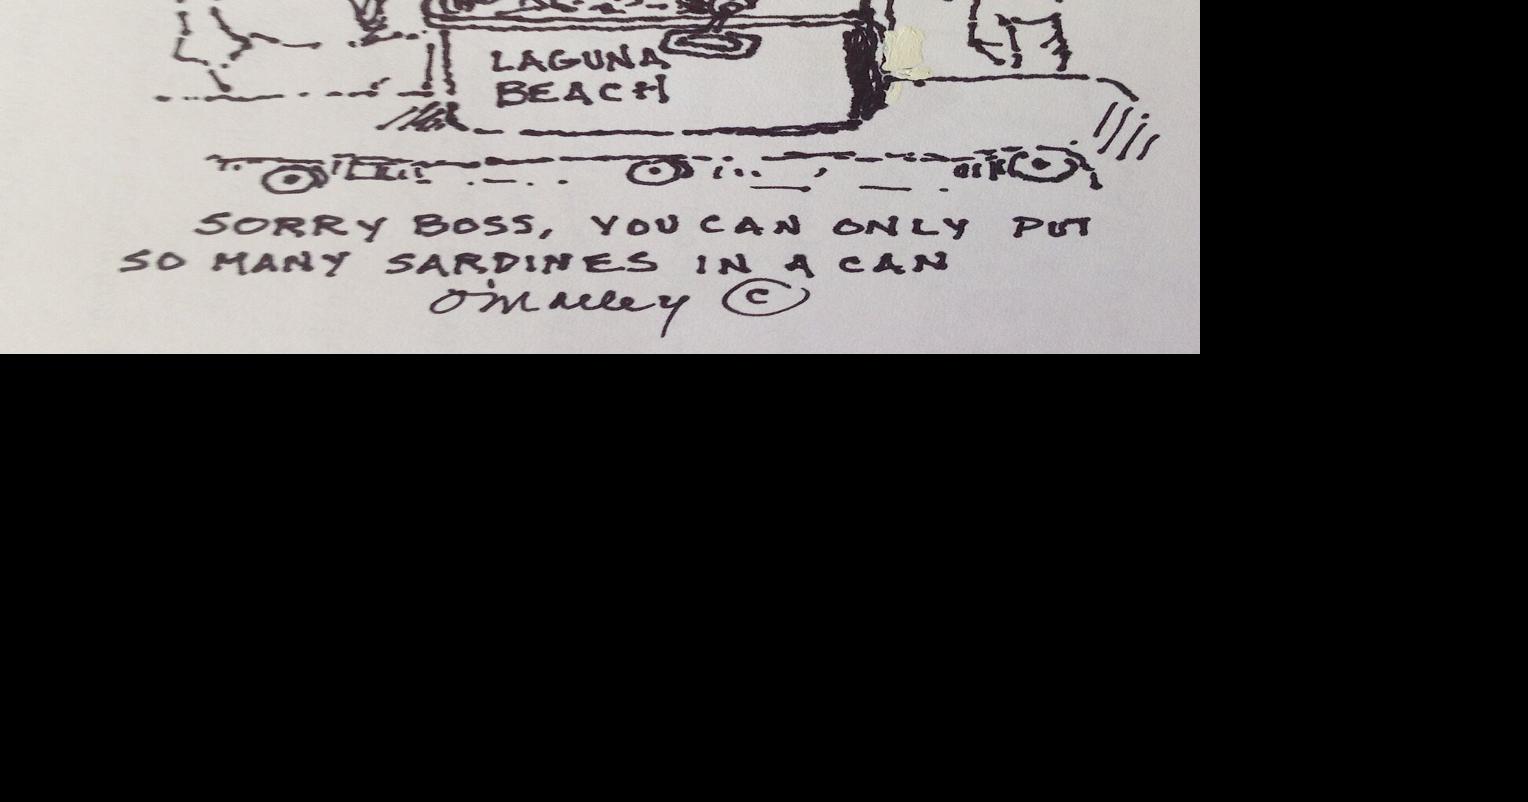 LAGUNA
BEACH
SORRY BOSS, YOU CAN ONLY PUT
SO MANY SARDINES IN A CAN
O'Malley ©